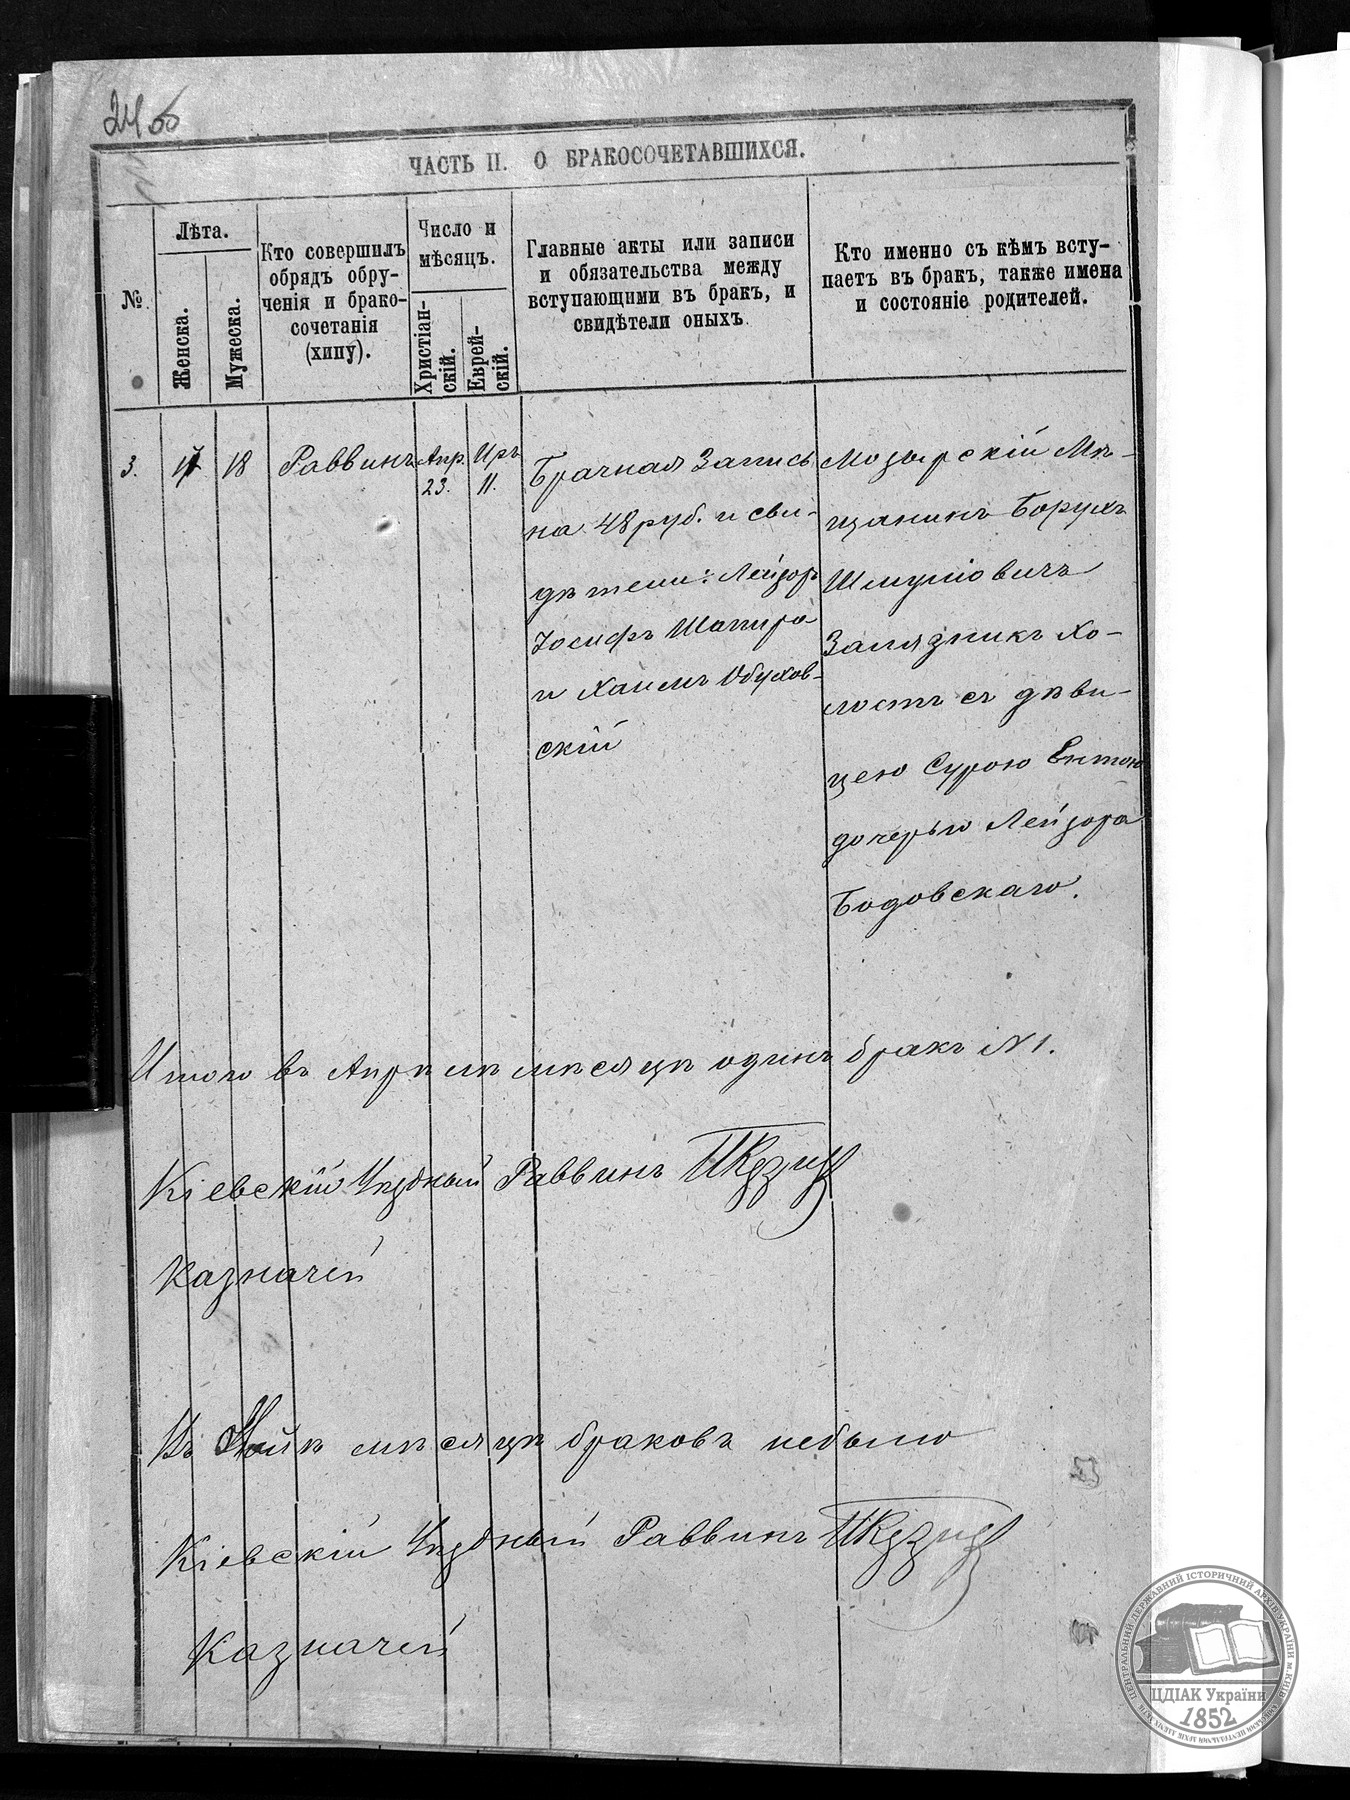 24об
ЧАСТЬ II. О БРАКОСОЧЕТАВШИХСЯ.
№
Лѣта.
Женска.
Мужеска.
Кто совершилъ
обрядъ обру-
ченія и брако-
сочетанія
(хипу).
Число и
мѣсяцъ.
Христіан-
скій.
Еврей-
скій.
Главные акты или записи
и обязательства между
вступающими въ бракъ, и
свидѣтели оныхъ.
Кто именно съ кѣмъ всту-
паетъ въ бракъ, также имена
и состояніе родителей.
3.
17
18
Раввинъ
Апр.
23.
Иръ
11.
Брачная Запись
на 48 руб. и сви-
дѣтели: Лейзоръ
Іосифъ Шапиро
и Хаимъ Обухов-
скій
Мозырскій Мѣ-
щанинъ Борухъ
Шмуліовичъ
Залязникъ Хо-
лостъ съ дѣви-
цею Сурою Ентою
дочерью Лейзора
Бодовскаго.
Итого въ Апрѣлѣ мѣсяцѣ одинъ бракъ N 1.
Кіевскій Уѣздный Раввинъ
Казначей
Въ Маѣ мѣсяцѣ браковъ небыло
Кіевскій Уѣздный Раввинъ
Казначей
ЦЕНТРАЛЬНИЙ ДЕРЖАВНИЙ ІСТОРИЧНИЙ АРХІВ УКРАЇНИ м.КИЇВ
ЦДІАК України
1852